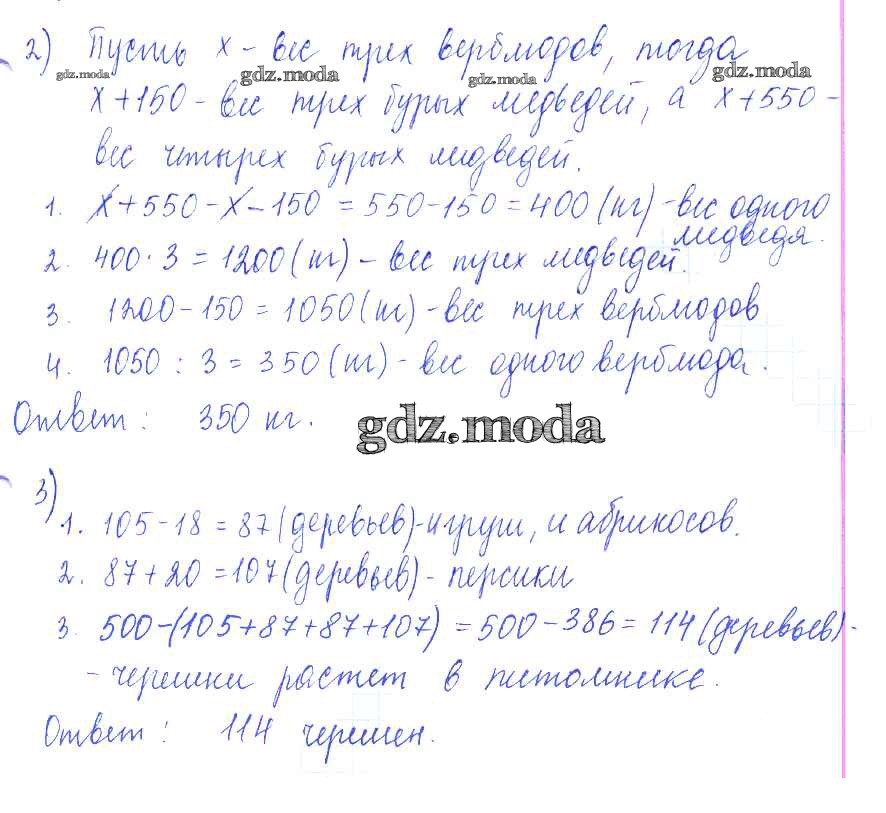 2) Пусть x - вес трех верблюдов, тогда
gdz.moda gdz.moda gdz.moda gdz.moda
x+150 - вес трех бурых медведей, а x+550 -
вес четырех бурых медведей.
1. x+550-x-150 = 550-150 = 400 (кг) - вес одного
медведя.
2. 400·3 = 1200 (кг) - вес трех медведей.
3. 1200-150 = 1050 (кг) - вес трех верблюдов
4. 1050 : 3 = 350 (кг) - вес одного верблюда.
Ответ: 350 кг.
gdz.moda
3)
1. 105-18 = 87 (деревьев) - и груш, и абрикосов.
2. 87+20 = 107 (деревьев) - персики
3. 500-(105+87+87+107) = 500-386 = 114 (деревьев) -
- черешни растет в питомнике.
Ответ: 114 черешен.